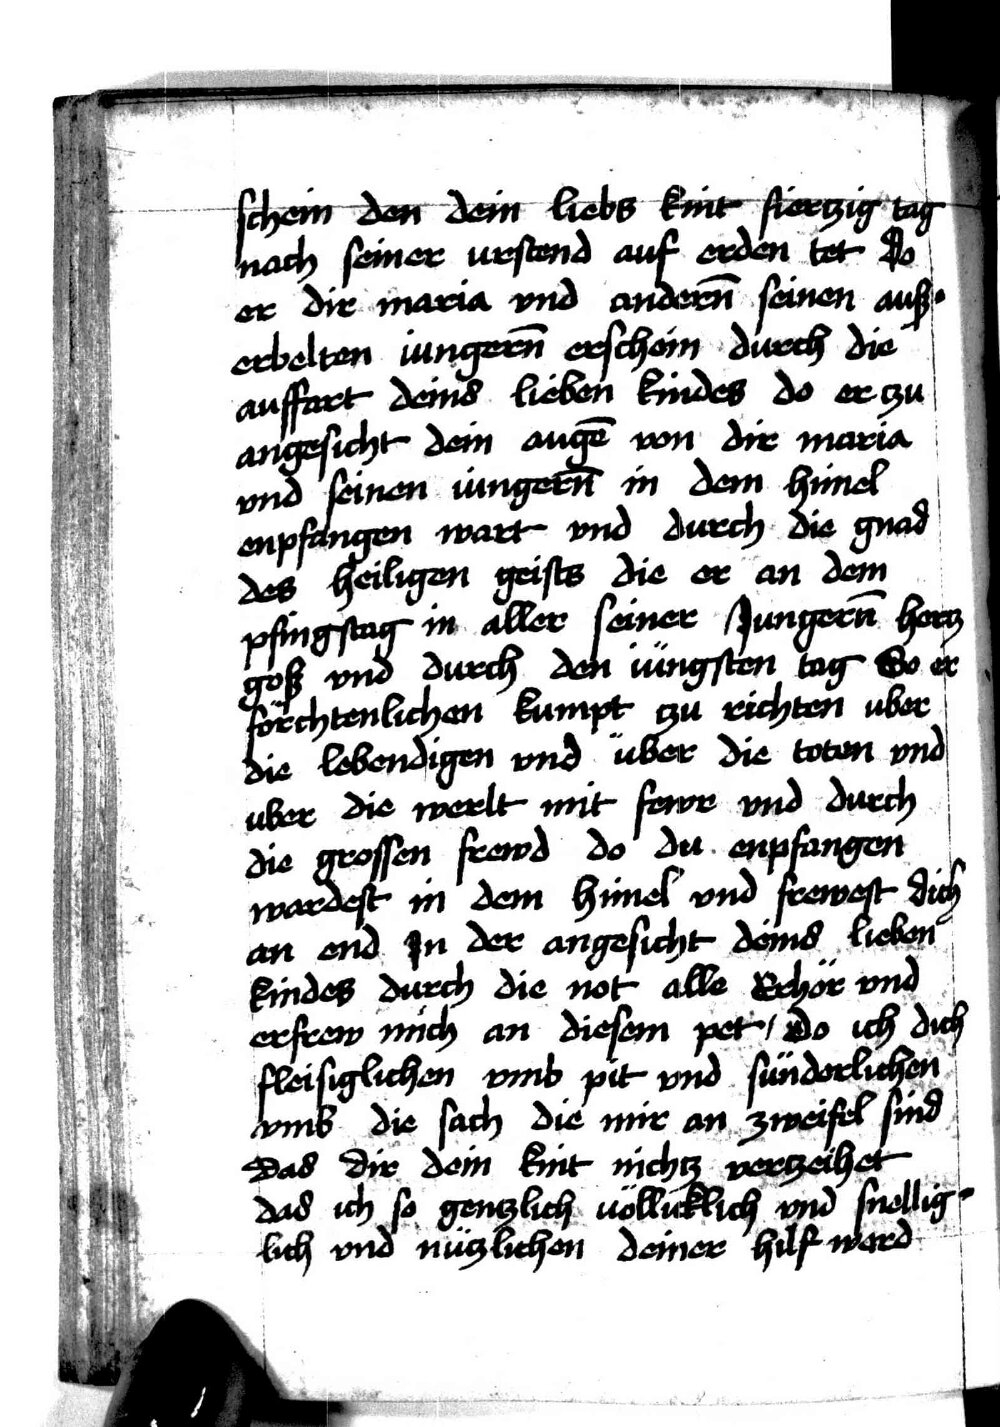 schein den dein liebs kint fiertzig tag
nach seiner urstend auf erden tet Do
er dir maria vnd andern̄ seinen auß⸗
erbelten iungern̄ erschein durch die
auffart deins lieben kindes do er zu
angesicht dein augē von dir maria
vnd seinen iungern̄ in dem himel
enpfangen wart vnd durch die gnad
des heiligen geists die er an dem
pfingstag in aller seiner Jungern̄ hertz
goß vnd durch den iüngsten tag So er
förchtenlichen kumpt zu richten uber
die lebendigen vnd über die toten vnd
uber die werlt mit fewr vnd durch
die grossen frewd do du enpfangen
wardest in dem himel vnd frewest dich
an end In der angesicht deins lieben
kindes durch die not alle Erhör vnd
erfrew mich an diesem pet / Do ich dich
fleisiglichen vmb pit vnd sünderlichen
vmb die sach die mir an zweifel sind
Das dir dein kint nichtz vertzeihet
das ich so gentzlich völliklich vnd snellig⸗
lich vnd nützlichen deiner hilf werd